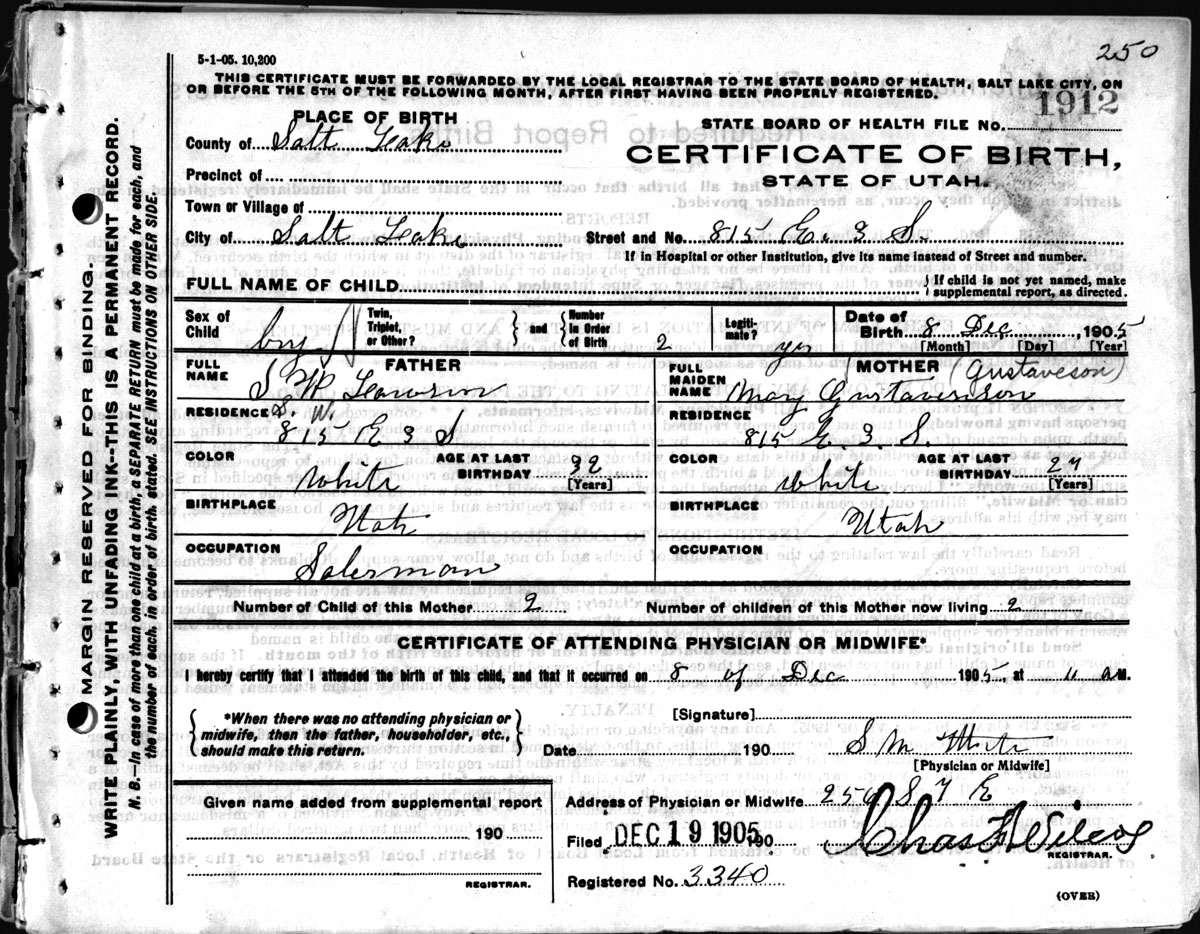 250
5-1-05. 10,200
THIS CERTIFICATE MUST BE FORWARDED BY THE LOCAL REGISTRAR TO THE STATE BOARD OF HEALTH, SALT LAKE CITY, ON
OR BEFORE THE 5TH OF THE FOLLOWING MONTH, AFTER FIRST HAVING BEEN PROPERLY REGISTERED.
PLACE OF BIRTH
STATE BOARD OF HEALTH FILE No. 1912
County of Salt Lake
CERTIFICATE OF BIRTH,
STATE OF UTAH.
Precinct of
Town or Village of
City of Salt Lake Street and No. 815 E. 3 S.
If in Hospital or other Institution, give its name instead of Street and number.
FULL NAME OF CHILD { If child is not yet named, make
supplemental report, as directed.
Sex of Child boy Twin, Triplet, or Other? } and { Number in Order of Birth 2 Legiti- mate? yes Date of Birth 8 Dec 1905
[Month] [Day] [Year]
FULL NAME FATHER S. W.
FULL MAIDEN NAME MOTHER (Gustaveson)
Mary Gustaveson
RESIDENCE S. W. 815 E 3 S
RESIDENCE 815 E. 3. S.
COLOR White AGE AT LAST BIRTHDAY 32 [Years]
COLOR White AGE AT LAST BIRTHDAY [Years]
BIRTHPLACE Utah
BIRTHPLACE Utah
OCCUPATION Salesman
OCCUPATION
Number of Child of this Mother 2 Number of children of this Mother now living 2
CERTIFICATE OF ATTENDING PHYSICIAN OR MIDWIFE*
I hereby certify that I attended the birth of this child, and that it occurred on 8 of Dec 1905, at 11 a M.
{ *When there was no attending physician or
midwife, then the father, householder, etc.,
should make this return. }
[Signature]
Date 190 S M
[Physician or Midwife]
Given name added from supplemental report
190
REGISTRAR.
Address of Physician or Midwife 256 S 7 E
Filed DEC 19 1905 190 Chas
REGISTRAR.
Registered No. 3340
(OVER)
MARGIN RESERVED FOR BINDING.
WRITE PLAINLY, WITH UNFADING INK--THIS IS A PERMANENT RECORD.
N. B.—In case of more than one child at a birth, a SEPARATE RETURN must be made for each, and
the number of each, in order of birth, stated. SEE INSTRUCTIONS ON OTHER SIDE.